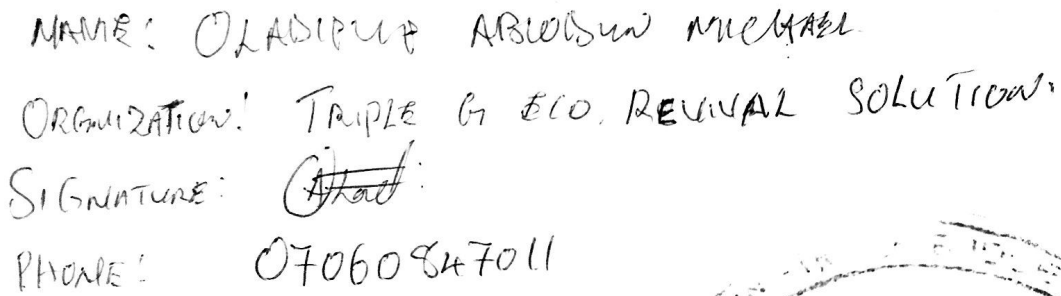 NAME: OLADIPUPO ABIODUN MICHAEL
ORGANIZATION: TRIPLE G ECO. REVIVAL SOLUTION.
SIGNATURE:
PHONE: 07060847011